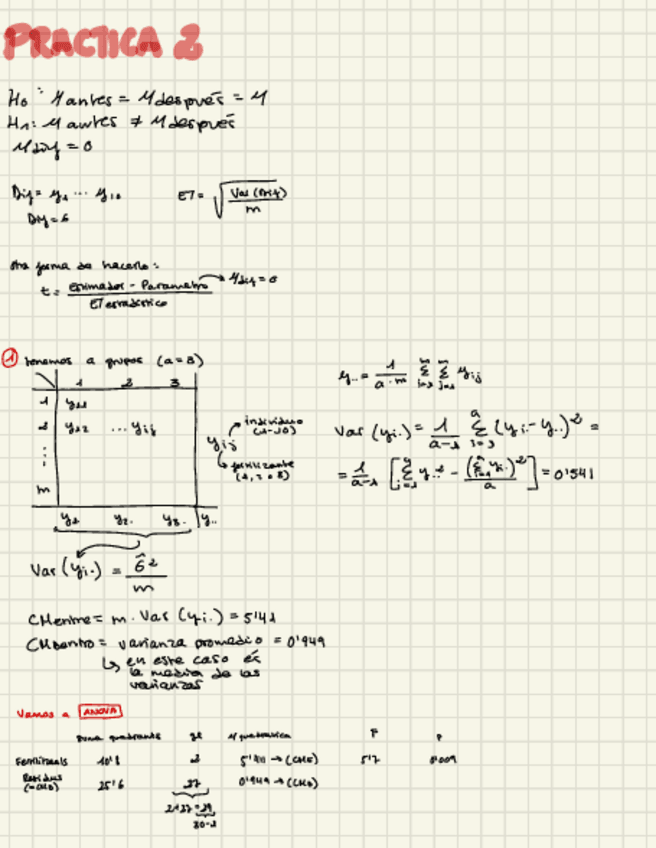 PRACTICA 2
H₀: μantes = μdespués = μ
H₁: μantes ≠ μdespués
μdif = 0
Dif = y₁ ... y₁₀
ET = √(Var(Dif)/m)
Otra forma de hacerlo:
t = (Estimador - Parametro)/(ET estadístico) → μdif = 0
① tenemos a grupos (a=3)
1 2 3
1 y₁₁
2 y₁₂ ... yᵢⱼ
⋮
m
yᵢⱼ → individuo (1-10)
→ fertilizante (1, 2 o 3)
y₁. y₂. y₃. y..
Var(yᵢ.) = σ̂²/m
y.. = 1/(a·m) Σ Σ yᵢⱼ
Var(yᵢ.) = 1/(a-1) Σ (yᵢ. - y..)² =
= 1/(a-1) [Σ yᵢ.² - (Σ yᵢ.)²/a] = 0'541
CMentre = m · Var(yᵢ.) = 5'41
CMdentro = varianza promedio = 0'949
↳ en este caso es
la media de las
varianzas
Vamos a ANOVA
Suma quadrants gl M quadratica F P
Fertilitzants 10'8 2 5'411 → (CME) 5'7 0'009
Residus (=CMD) 25'6 27 0'949 → (CMD)
2+27 = 29
30-1